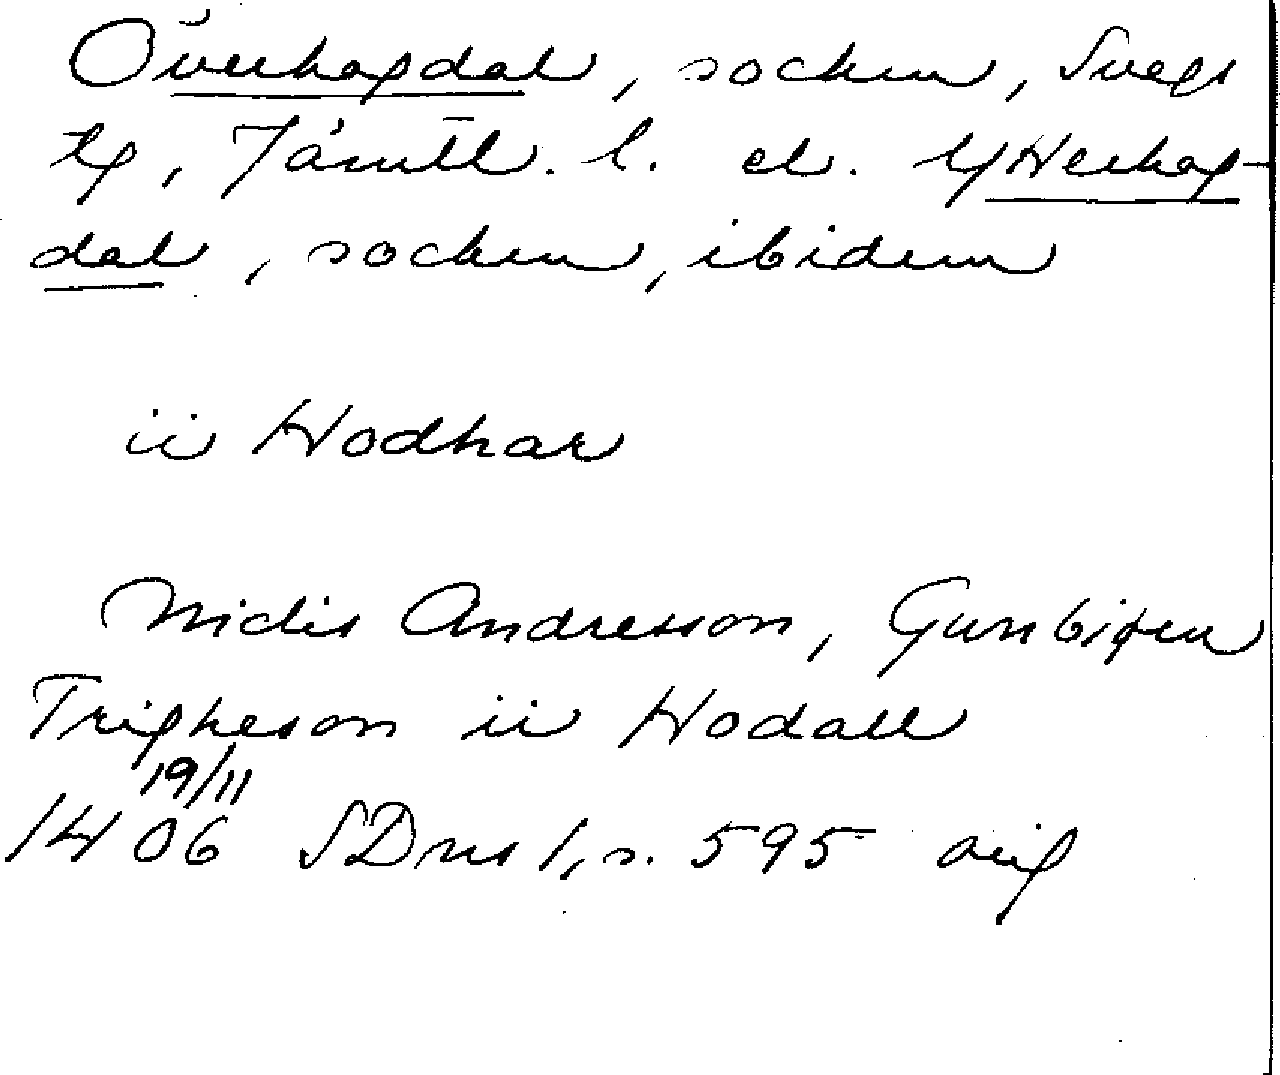 Överhogdal, socken, Svegs
tg, Jämtl. l. el. Ytterhog-
dal, socken, ibidem
ii Hodhar
Nidis Andresson, Gunbiþen
Trigheson ii Hodall
19/11
1406 SDns 1, s. 595 orig